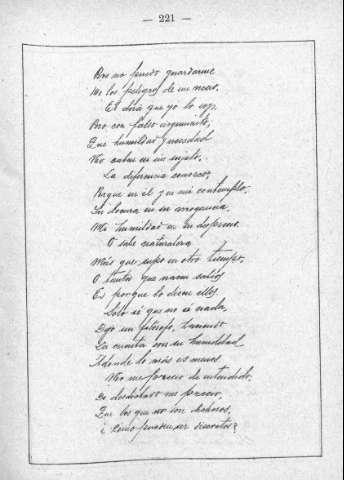 — 221 —
Pero no puedo guardarme
De los peligros de un necio.
El dirá que yo lo soy,
Pero con falso argumento,
Que humildad y necedad
No caben en un sujeto.
La diferencia conozco,
Porque en él y en mí contemplo,
Su locura en su arrogancia,
Mi humildad en su desprecio.
O sabe naturaleza
Más que supo en otro tiempo,
O tantos que nacen sabios
Es porque lo dicen ellos.
Solo sé que no sé nada,
Dijo un filósofo, haciendo
La cuenta con su humildad
Adonde lo más es menos
No me precio de entendido,
De desdichado me precio,
Que los que no son dichosos,
¿Cómo pueden ser discretos?